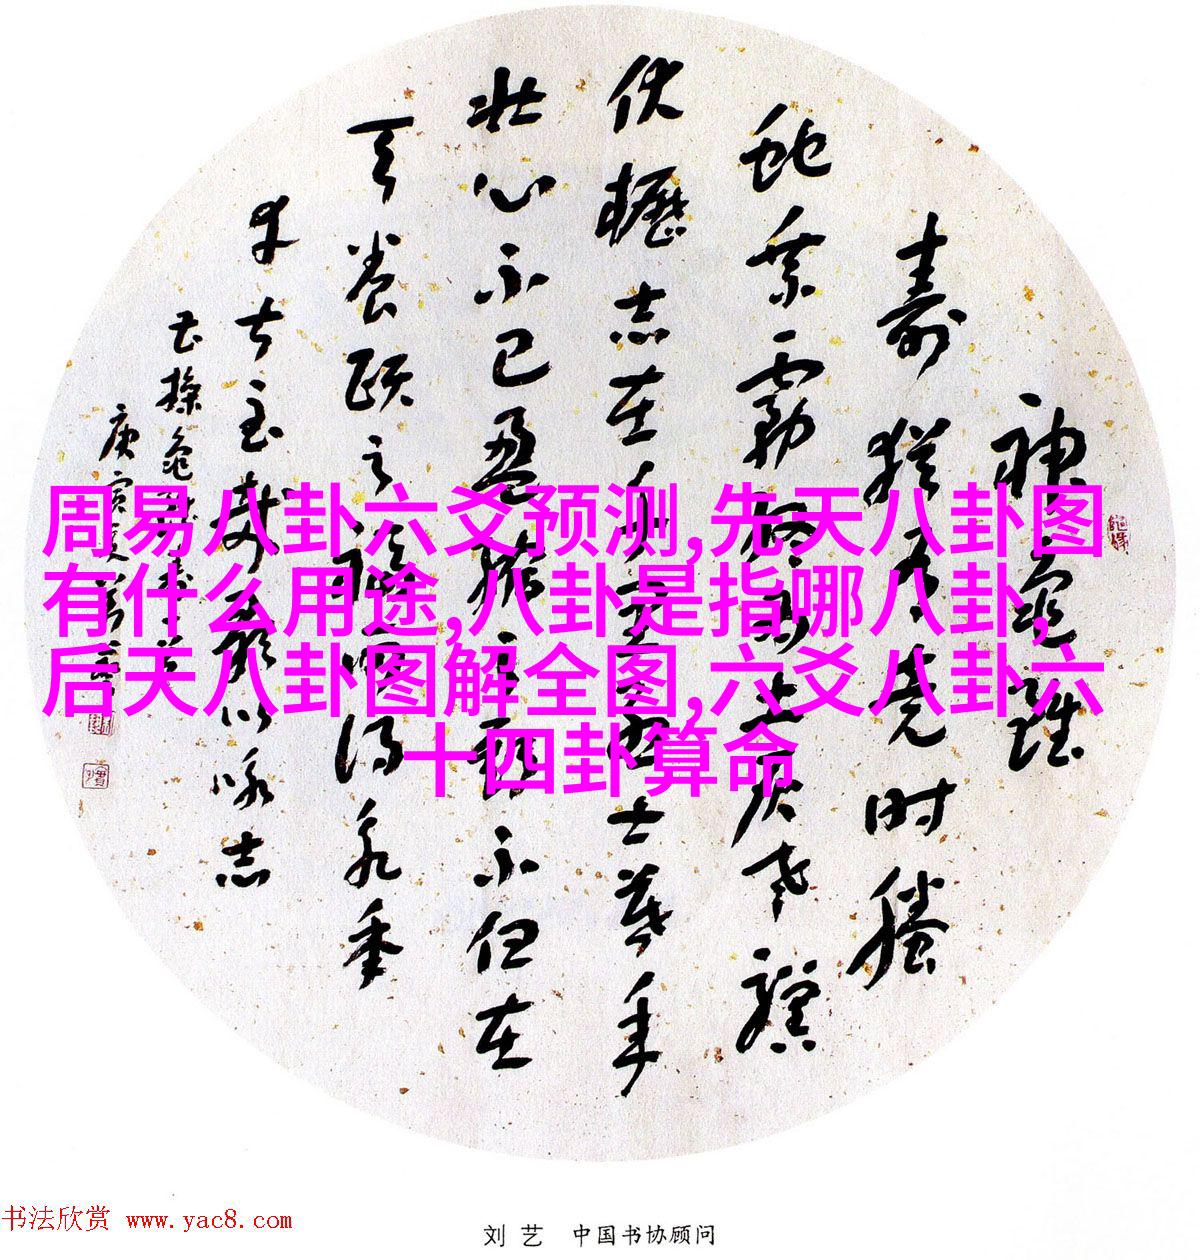 周易八卦六爻预测,先天八卦图
有什么用途,八卦是指哪八卦,
后天八卦图解全图,六爻八卦六
十四卦算命
神龜雖
壽猶有竟时螣
蛇乘霧终為土灰老驥
伏櫪志在千里烈士暮年
壮心不已盈缩之期不但在
天養頤之福可得永年
幸甚至哉歌以咏志
曹操龜雖壽
庚寅夏刘艺
书法欣赏 www.yac8.com
刘艺 中国书协顾问